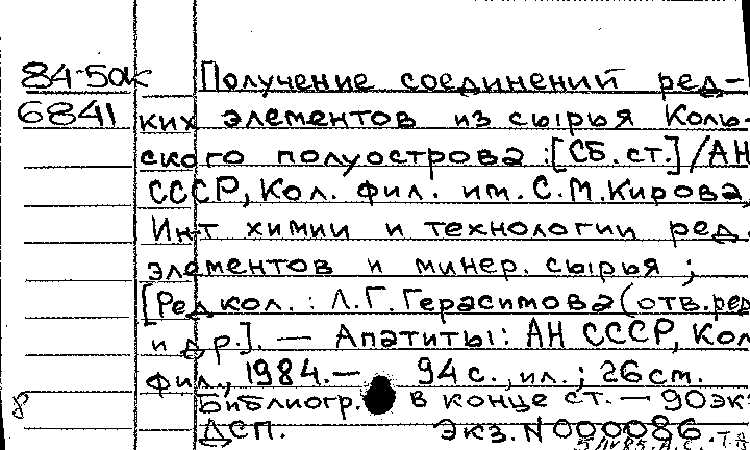 84-50к Получение соединений ред-
6841 ких элементов из сырья Коль-
ского полуострова :[Сб.ст.]/АН
СССР, Кол. фил. им. С.М.Кирова,
Ин-т химии и технологии ред.
элементов и минер. сырья ;
[Редкол.: Л.Г.Герасимова(отв.ред
и др.]. — Апатиты: АН СССР, Кол
фил., 1984.— 94 с., ил.; 26 см.
8 Библиогр. в конце ст. — 90 экз
ДСП. Экз. N 000086.